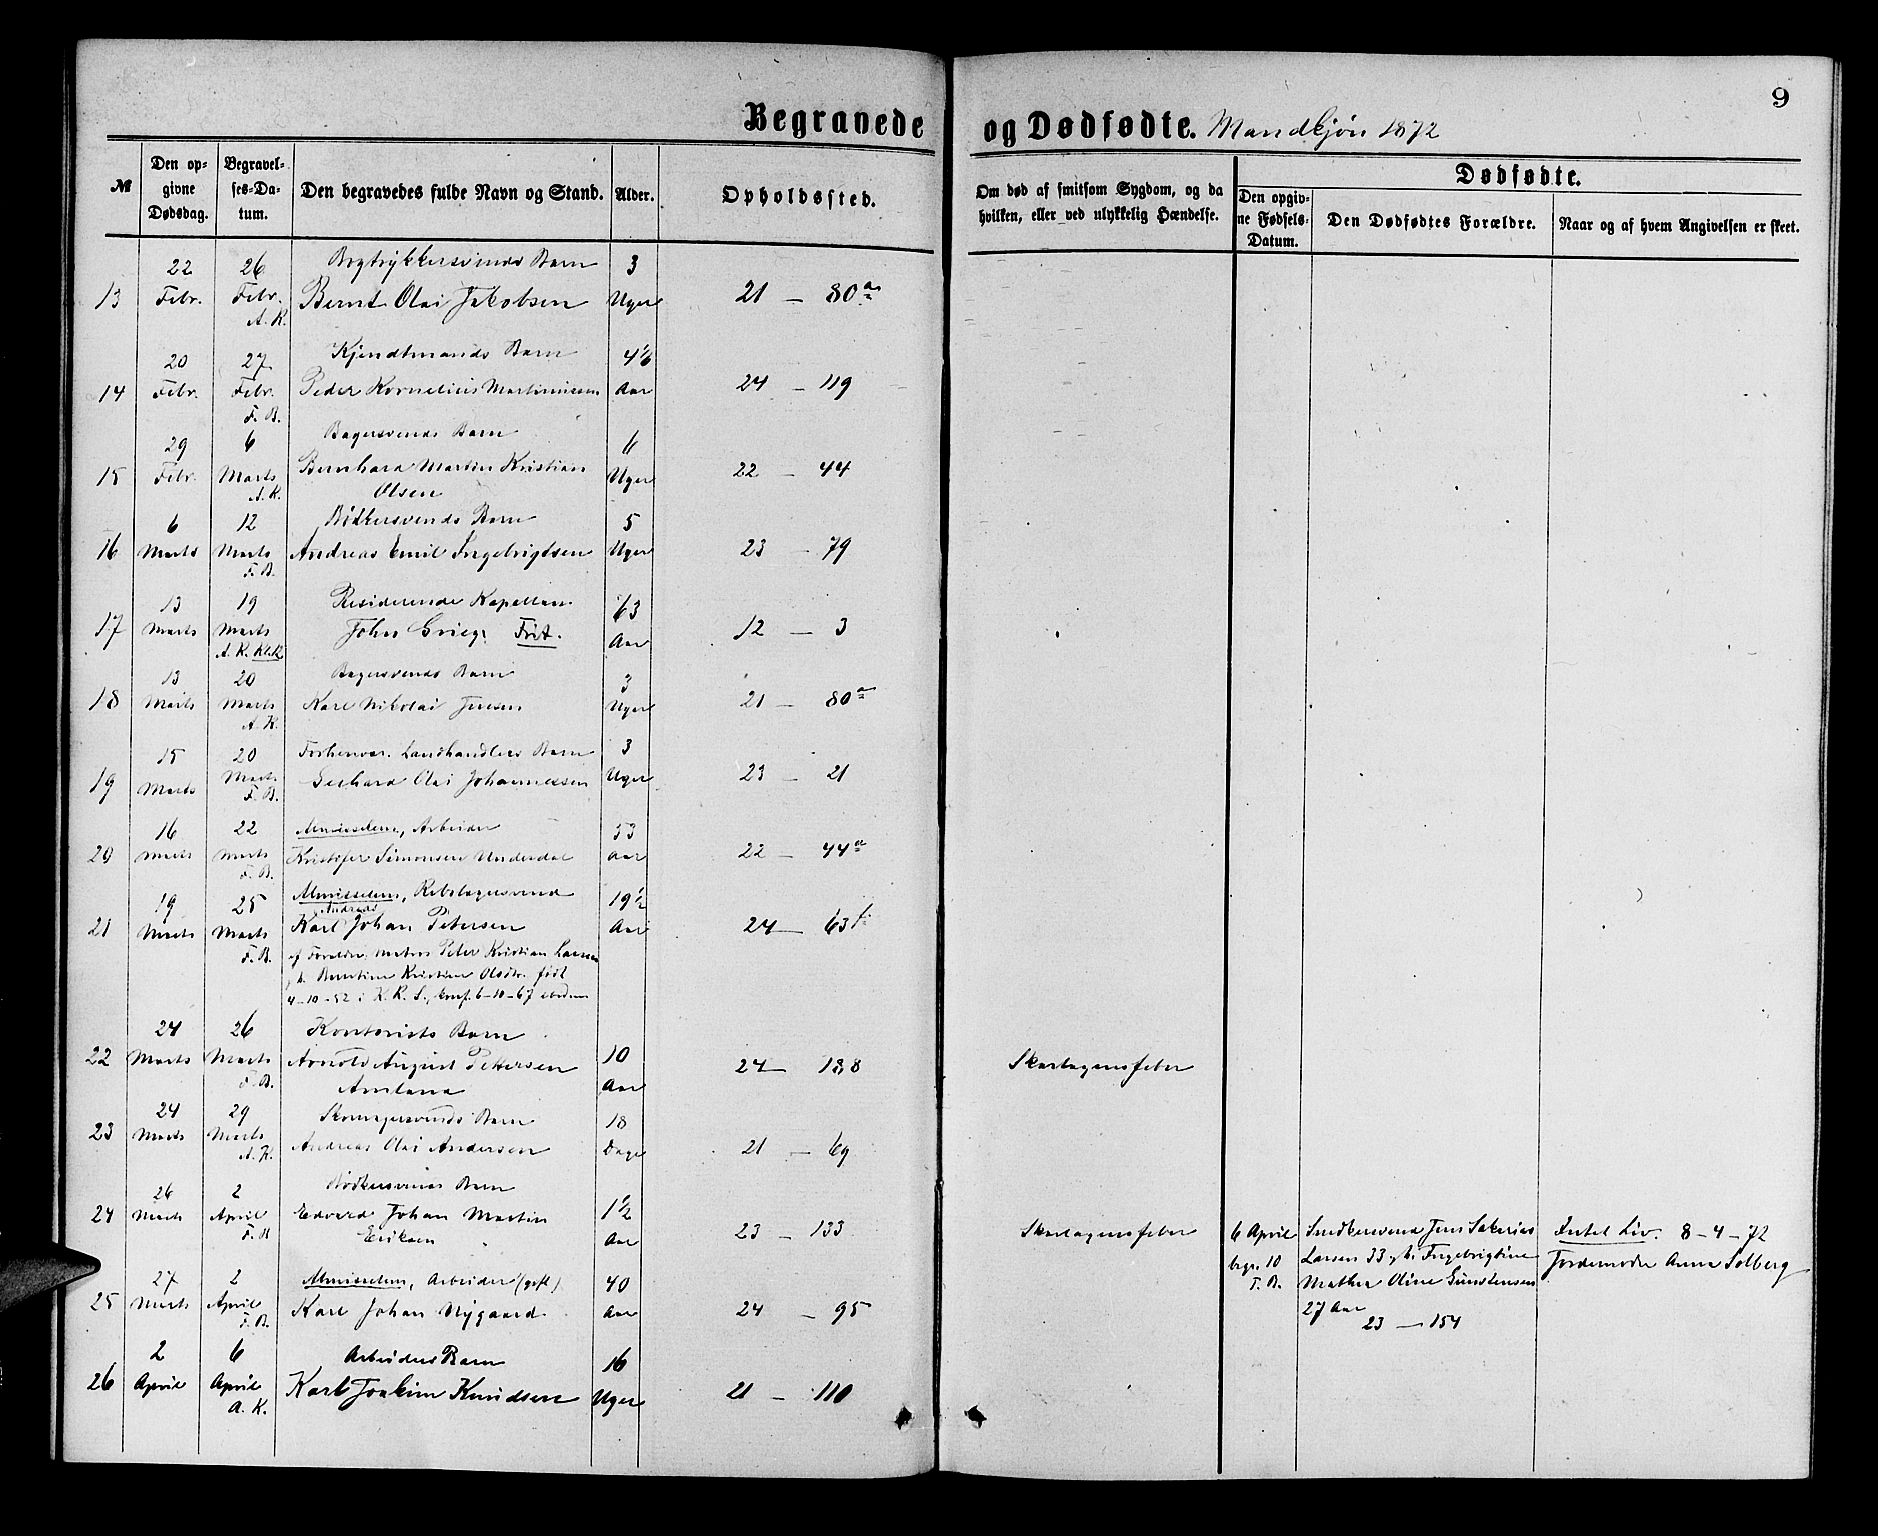 9
Begravede og Dødfødte. Mandkjøn 1872
№
Den opgivne Dødsdag.
Begravelses-Datum.
Den begravedes fulde Navn og Stand.
Alder.
Opholdssted.
Om død af smitsom Sygdom, og da hvilken, eller ved ulykkelig Hændelse.
Dødfødte.
Den opgivne Fødsels-Datum.
Den Dødfødtes Forældre.
Naar og af hvem Angivelsen er skeet.
22 26 Bogtrykkersvends Barn 3
13 Febr. Febr. Bernt Olai Jakobsen Uger 21 — 80a
A. K.
20 27 Kjendtmands Barn 4 1/6
14 Febr. Febr. Peder Kornelius Martinusen Aar 24 — 119
F. B.
29 6 Bagersvends Barn 6
15 Febr. Marts Bernhard Martin Kristian Uger 22 — 44
A. K. Olsen
6 12 Bødkersvends Barn 5
16 Marts Marts Andreas Emil Ingebrigtsen Uger 23 — 79
F. B.
13 19 Residerende Kapellan 63
17 Marts Marts John Grieg. Frit. Aar 12 — 3
A. K. Kl.R
13 20 Bagersvends Barn 3
18 Marts Marts Karl Nikolai Jensen Uger 21 — 80a
A. K.
15 20 Forhenvær. Landhandlers Barn 3
19 Marts Marts Gerhard Olai Johannessen Uger 23 — 21
F. B.
16 22 Almisselem, Arbeider 53
20 Marts Marts Kristofer Simonsen Underdal Aar 22 — 44a
F. B.
19 25 Almisselem, Rebslagersvend 19 1/2
Andreas
21 Marts Marts Karl Johan Petersen Aar 24 — 63b
F. B. af Forældre, Matros Peter Kristian Larsen
g. h. Berntine Kristine Olsdtr. født
4-10-52 i K. K. S., konf. 6-10-67 ibidem
24 26 Kontorists Barn
22 Marts Marts Arnold August Pettersen 10 24 — 138 Skarlagensfeber
F. B. Amland Aar
24 29 Skomagersvends Barn 18
23 Marts Marts Andreas Olai Andersen Dage 21 — 69
A. K.
26 2 Bødkersvends Barn
24 Marts April Edvard Johan Martin 1 1/2 23 — 133 Skarlagensfeber
F. B Eriksen Aar
27 2 Almisselem, Arbeider (gift) 40
25 Marts April Karl Johan Nygaard Aar 24 — 95
F. B.
2 6 Arbeiders Barn 16
26 April April Karl Joakim Knudsen Uger 21 — 110
A. K.
6 April Snedkersvend Jens Sakarias Intet Liv. 8-4-72
begr. 10 Larsen 33 g. h. Ingebrigtine Jordemoder Anna Solberg
F. B. Mathea Oline Gunstensen
27 Aar
23 — 154